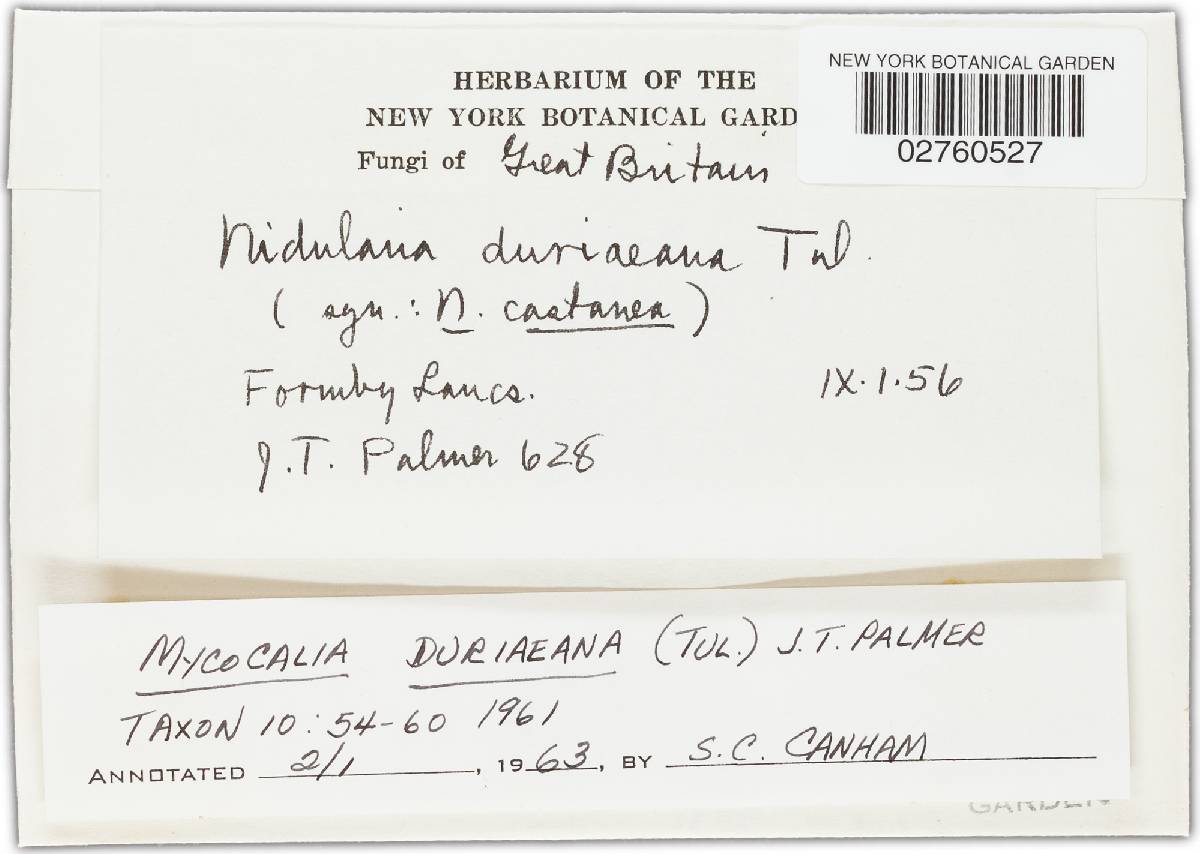 HERBARIUM OF THE
NEW YORK BOTANICAL GARD
NEW YORK BOTANICAL GARDEN
02760527
Fungi of Great Britain
Nidularia duriaeana Tul.
(syn.: N. castanea)
Formby Lancs. IX.1.56
J.T. Palmer 628
MYCOCALIA DURIAEANA (TUL.) J.T. PALMER
TAXON 10: 54-60 1961
ANNOTATED 2/1, 1963, BY S.C. CANHAM
GARDEN